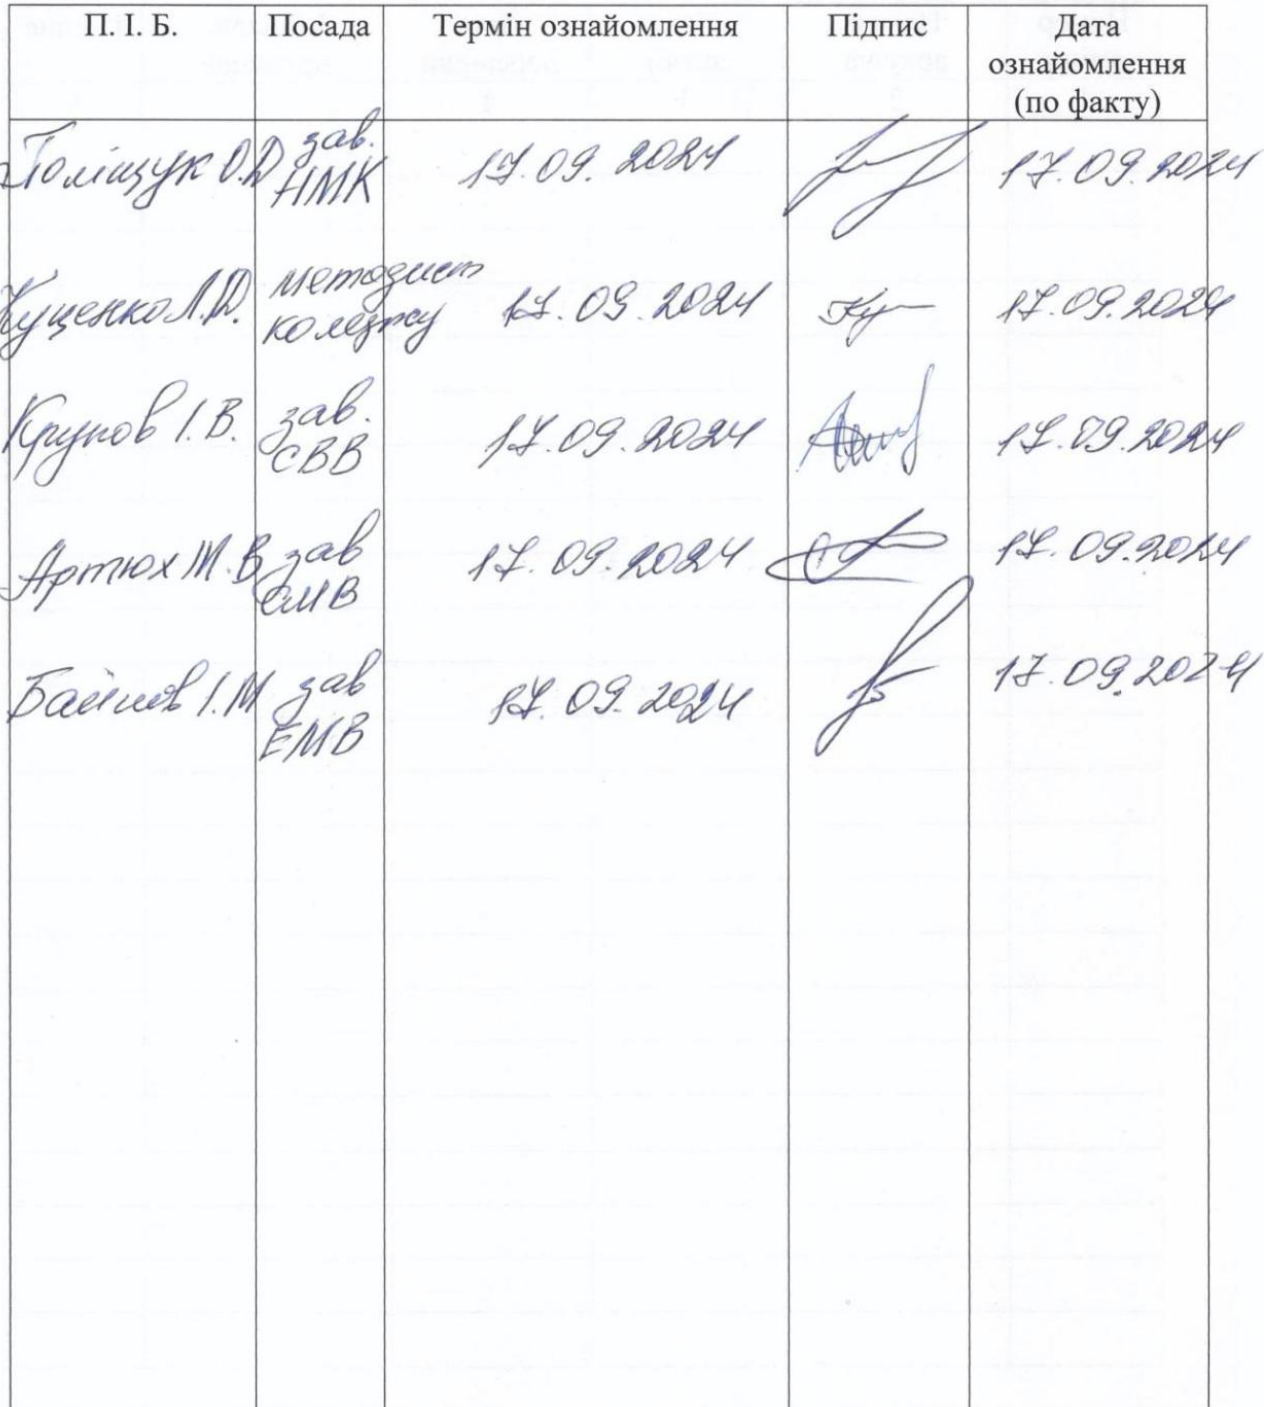 П. І. Б. Посада Термін ознайомлення Підпис Дата
ознайомлення
(по факту)
Поліщук О.Д зав. 17.09.2024 17.09.2024
НМК
Куценко Л.Д. методист 17.09.2024 17.09.2024
коледжу
Крупов І.В. зав. 17.09.2024 17.09.2024
СВВ
Артюх М.В зав 17.09.2024 17.09.2024
ЕМВ
І.М зав 17.09.2024 17.09.2024
ЕМВ